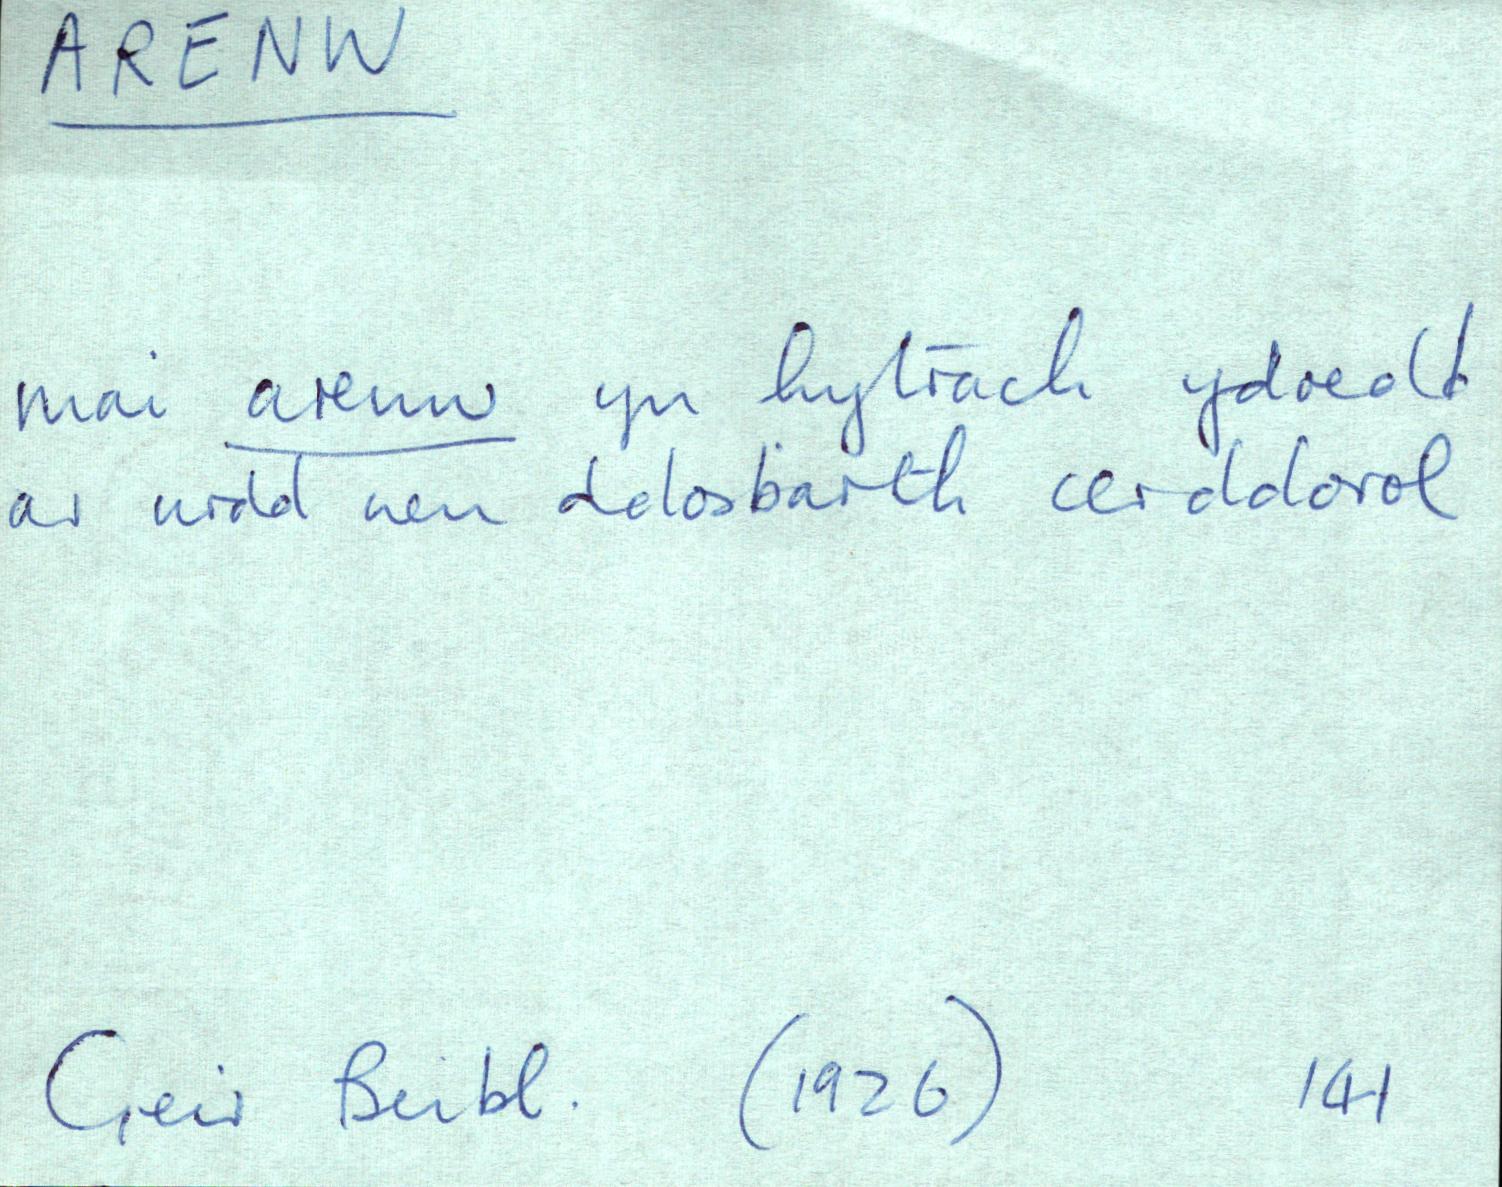 ARENW
mai arenw yn hytrach ydoedd
ar urdd neu ddosbarth cerddorol
Geir Beibl. (1926) 141